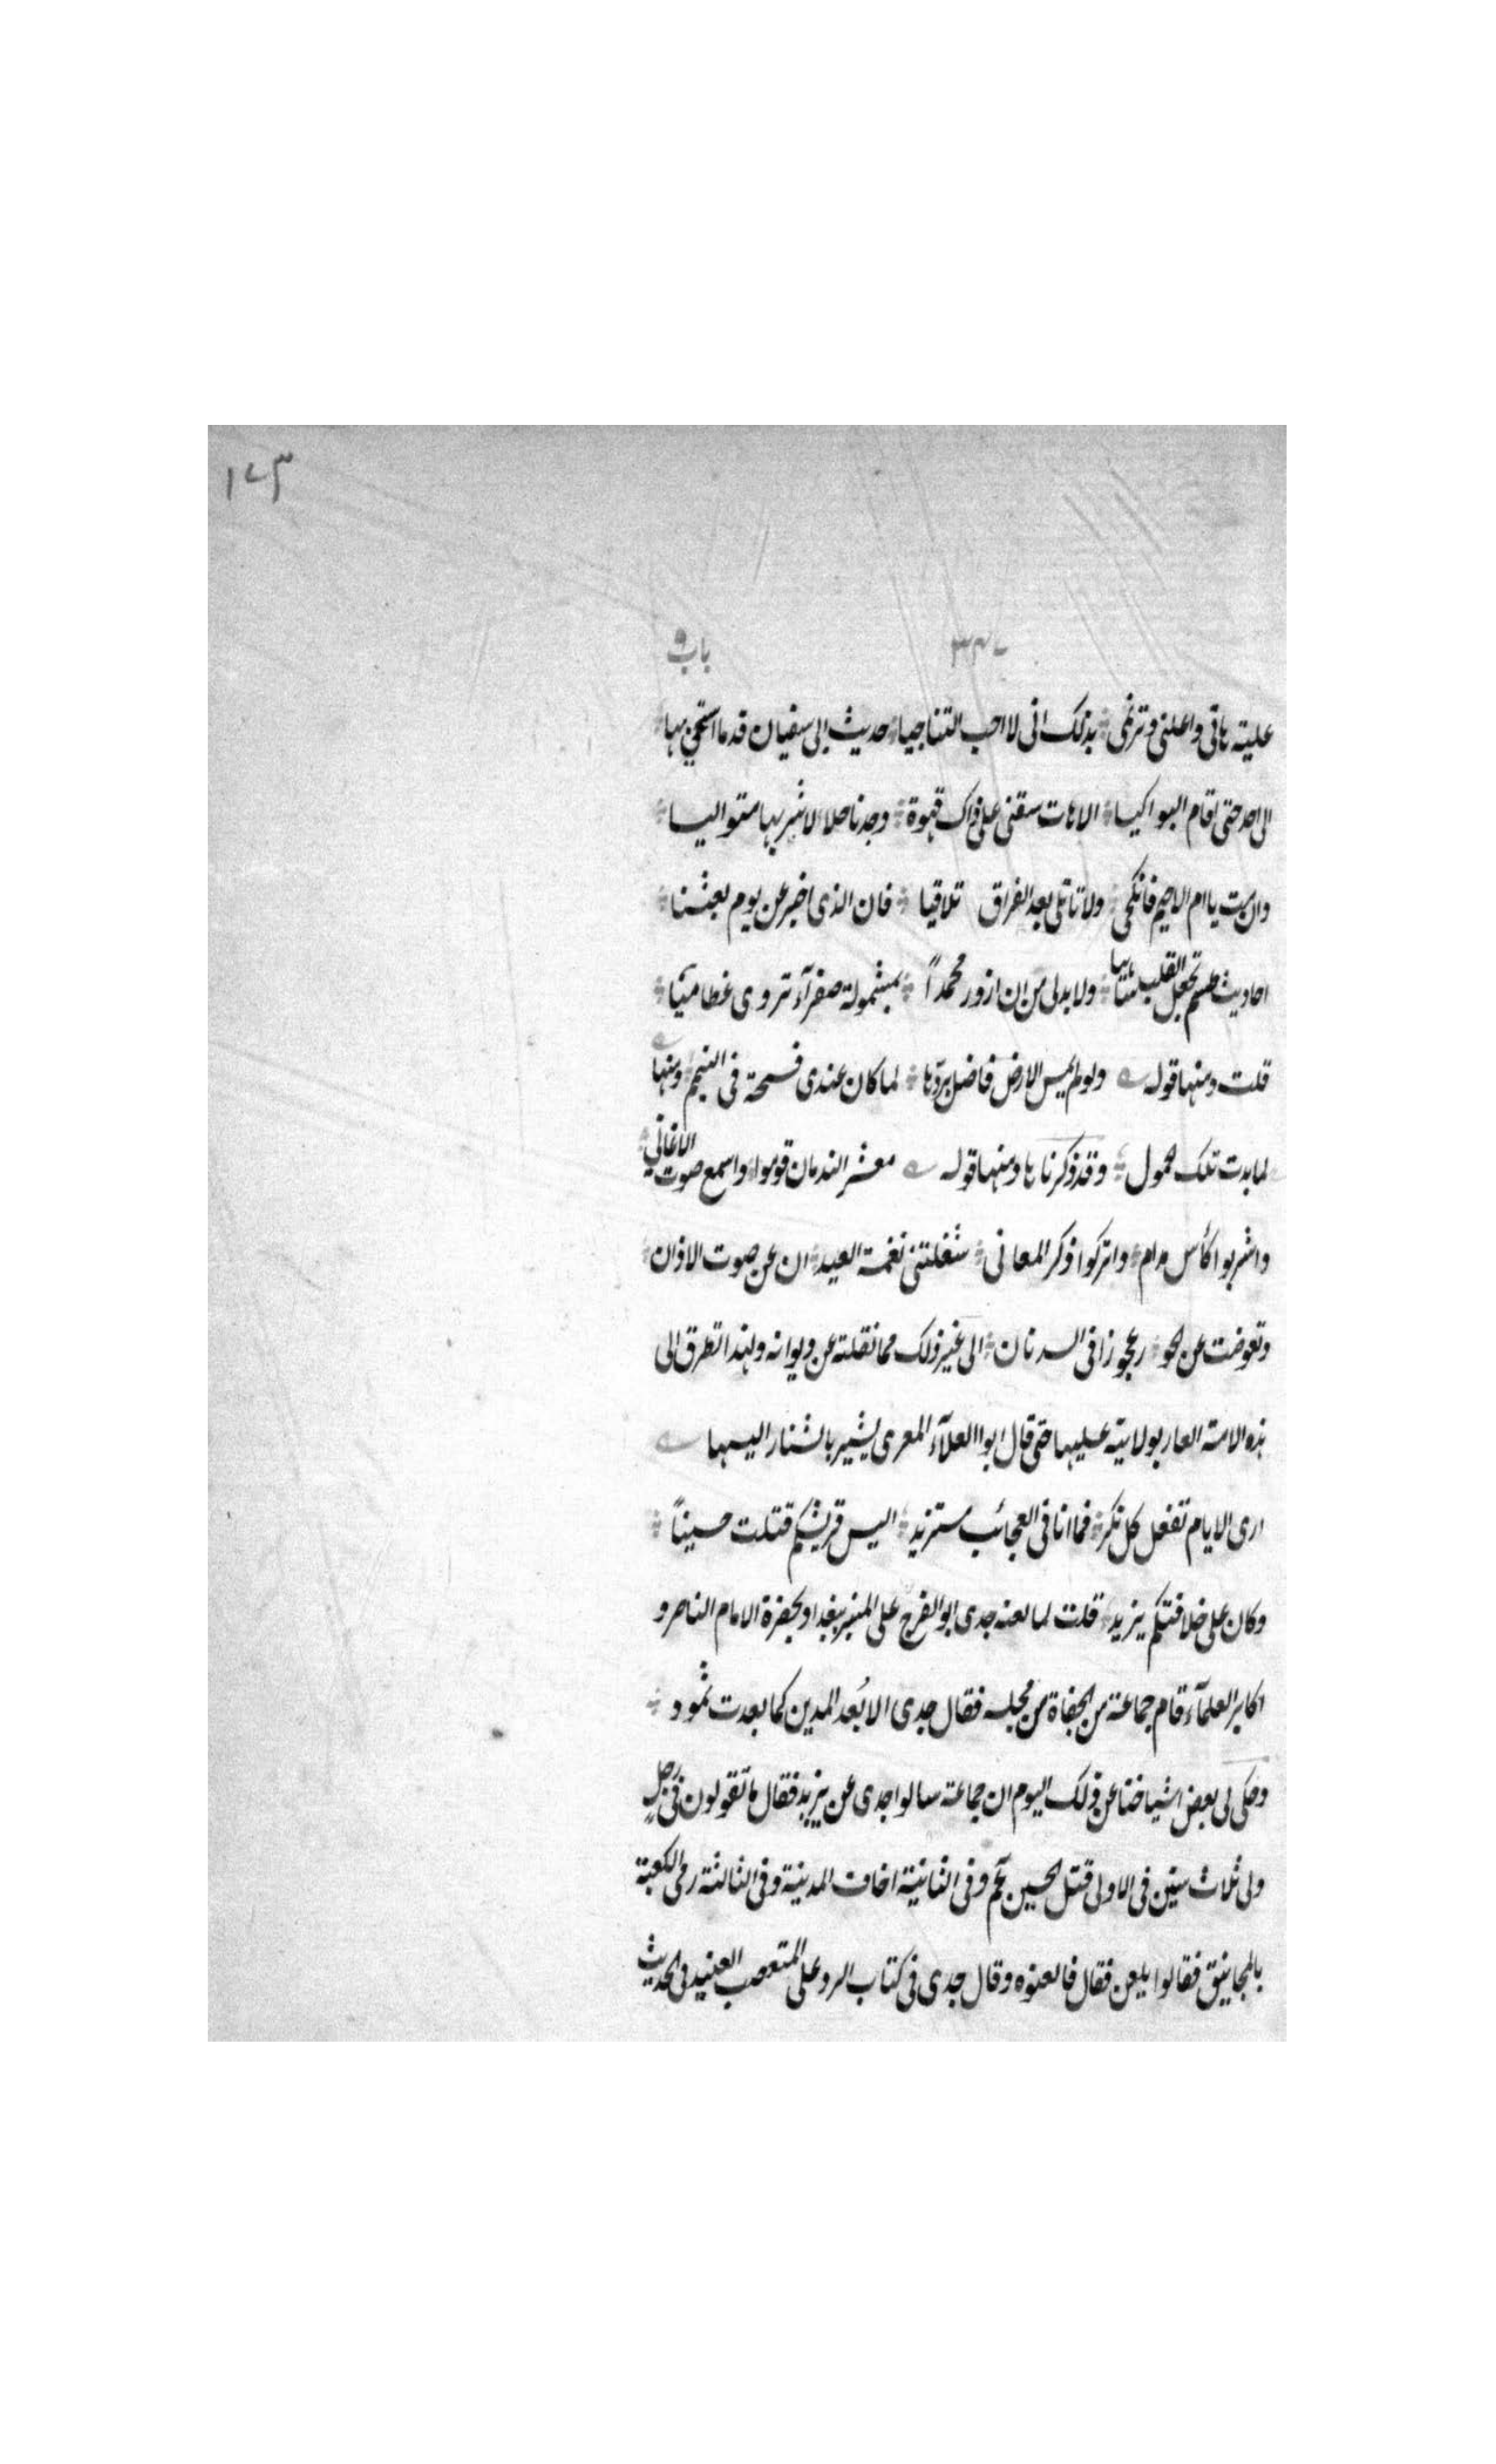 ١٧٣
٣٤٧ باب ٩
علية هاتى واعلنى وترنمى بذلك انى لا احب التناجيا حديث ابى سفيان قدما سمى بها
الى احد حتى اقام البواكيا الا هات سقنى على ذاك قهوة وجدنا حلالا شربها متواليا
وان مت يا ام الاحيم فانكحى ولا تاملى بعد الفراق تلاقيا فان الذى اخبر عن يوم بعثنا
احاديث طسم تجعل القلب ساهيا ولا بد لى من ان ازور محمداً بمشمولة صفرآء تروى عظاميا
قلت ومنها قوله ولو لم يمس الارض فاضل بردها لما كان عندى فسحة فى التيمم ومنها
لما بدت تلك الحمول وقد ذكرناها ومنها قوله معشر الندمان قوموا واسمع صوت الاغانى
واشربوا كأس مدام واتركوا ذكر المعانى شغلتنى نغمة العيد ان عن صوت الاذان
وتعوضت عن الحو ر عجوزا فى الدنان الى غير ذلك مما نقلته عن ديوانه ولهذا تطرق الى
هذه الامة العار بولايته عليها حتى قال ابوا العلآء المعرى يشير بالشنار اليها
ارى الايام تفعل كل نكر فما انا فى العجائب مستزيد اليس قريشكم قتلت حسيناً
وكان على خلافتكم يزيد قلت لما لعنه جدى ابو الفرج على المنبر ببغداد بحضرة الامام الناصر و
اكابر العلمآء قام جماعة من الجفاة من مجلسه فقال جدى الا بُعد المدين كما بعدت ثمود
وحكى لى بعض اشياخنا عن ذلك اليوم ان جماعة سالوا جدى عن يزيد فقال ما تقولون فى رجلٍ
ولى ثلاث سنين فى الاولى قتل الحسين وفى الثانية اخاف المدينة وفى الثالثة رمى الكعبة
بالمجانيق فقالوا يلعن فقال فالعنوه وقال جدى فى كتاب الرد على المتعصب العنيد الحديث